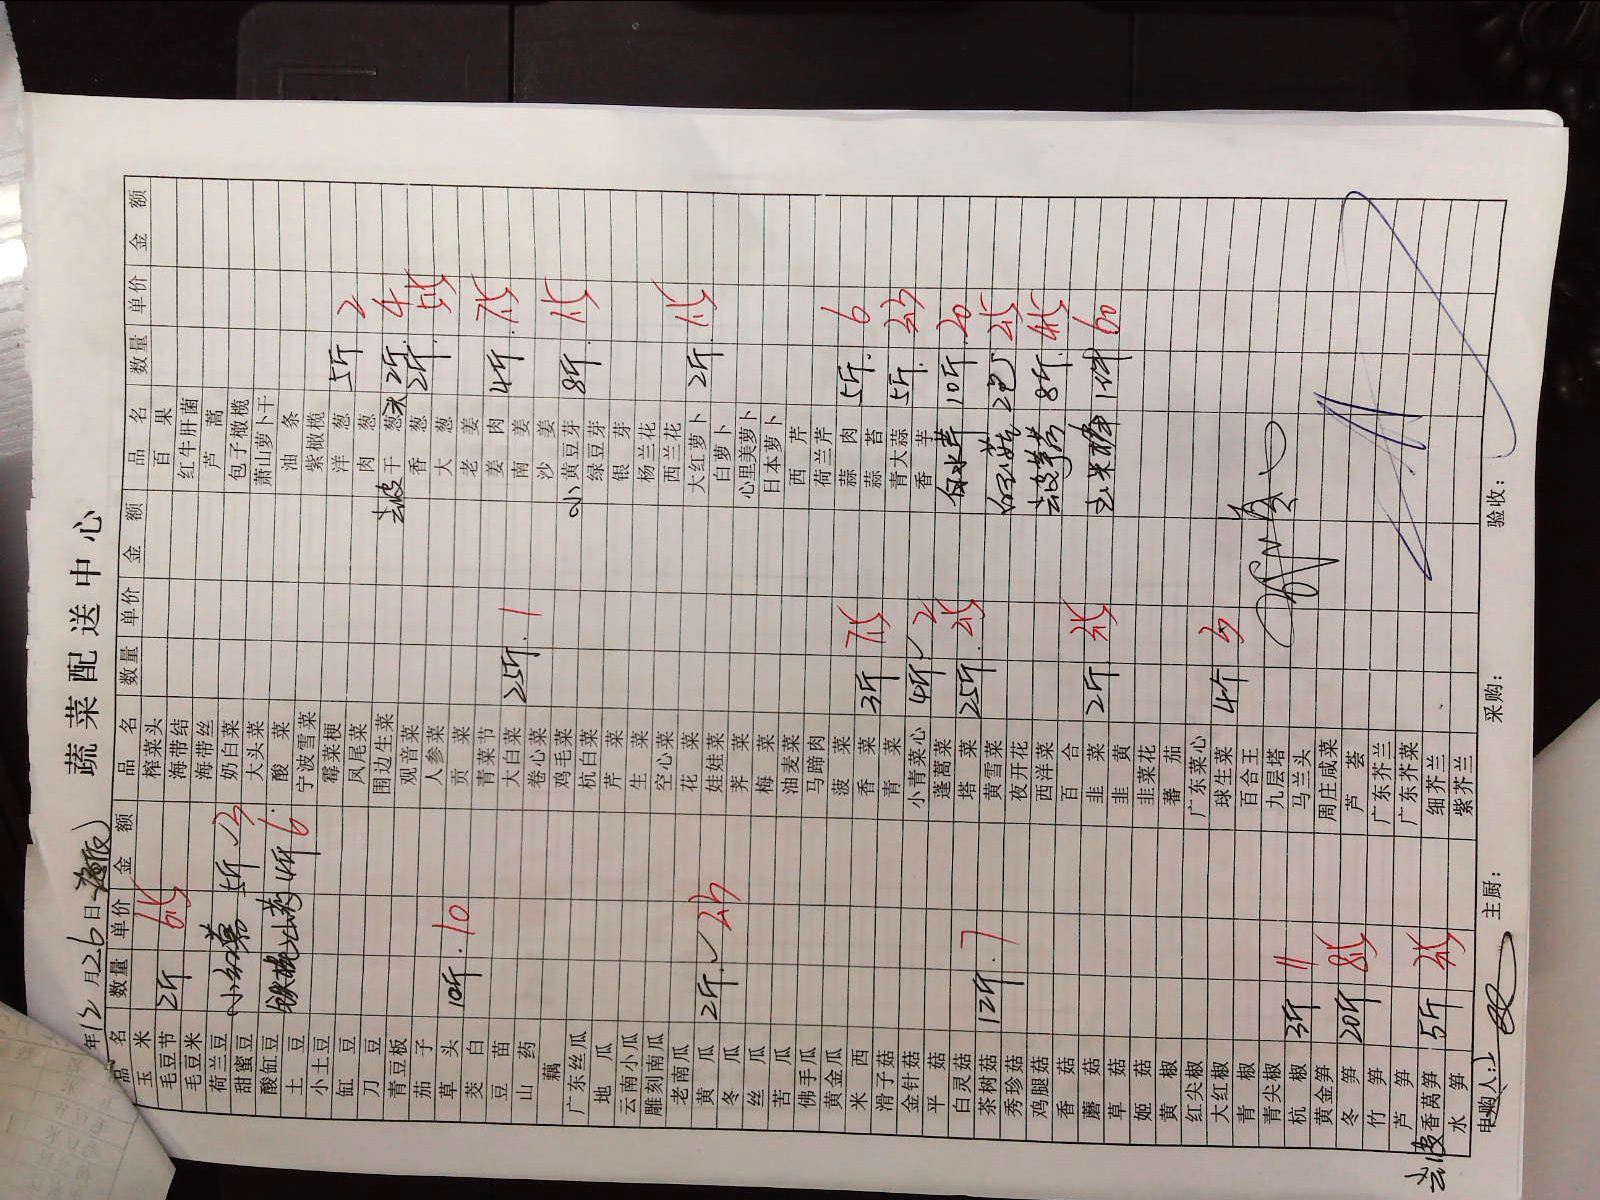 蔬菜配送中心
年12月26日
品名 数量 单价 金额
玉米
毛豆节 2斤 6.5
毛豆米
荷兰豆
甜蜜豆 5斤 3
酸缸豆
土豆 铁棍山药 4斤 6
小土豆
缸豆
刀豆
青豆板
茄子
草头 10斤 10
茭白
豆苗
山药
藕
广东丝瓜
地瓜
云南小瓜
雕刻南瓜
老南瓜
黄瓜 2斤 2.3
冬瓜
丝瓜
苦瓜
佛手瓜
黄金瓜
米西
滑子菇
金针菇
平菇
白灵菇
茶树菇 12斤 7
秀珍菇
鸡腿菇
香菇
蘑菇
草菇
姬菇
黄椒
红尖椒
大红椒
青椒
青尖椒
杭椒 3斤 11
黄金笋
冬笋 20斤 8.5
竹笋
芦笋
去皮香莴笋 5斤
水笋
品名 数量 单价 金额
榨菜头
海带结
海带丝
奶白菜
大头菜
酸菜
宁波雪菜
霉菜梗
凤尾菜
围边生菜
观音菜
人参菜
贡菜
青菜节
大白菜 25斤 1
卷心菜
鸡毛菜
杭白菜
芹菜
生菜
空心菜
花菜
娃娃菜
荠菜
梅菜
油麦菜
马蹄肉
菠菜
香菜 3斤 7.5
青菜
小青菜心 4斤 2
蓬蒿菜
塔菜 25斤 2.5
黄雪菜
夜开花
西洋菜
百合
韭菜 2斤 3.5
韭黄
韭菜花
蕃茄
广东菜心
球生菜 4斤 3
百合王
九层塔
马兰头
周庄咸菜
芦荟
广东芥兰
广东芥菜
细芥兰
紫芥兰
品名 数量 单价 金额
百果
红牛肝菌
芦蒿
包子橄榄
萧山萝卜干
油条
紫橄榄
洋葱 5斤 2
肉葱
去皮干葱头 2斤 4
香葱 2斤 5.5
大葱
老姜
姜肉 4斤 7.5
南姜
沙姜
小黄豆芽 8斤 1.5
绿豆芽
银芽
杨兰花
西兰花
大红萝卜 2斤 1.5
白萝卜
心里美萝卜
日本萝卜
西芹
荷兰芹
蒜肉 5斤 6
蒜苔
青大蒜 5斤 2.3
香芋
水芹 10斤 20
白玉菇 2包 2.5
去皮 8斤 4.5
玉米 1件 60
主厨：
采购：
验收：